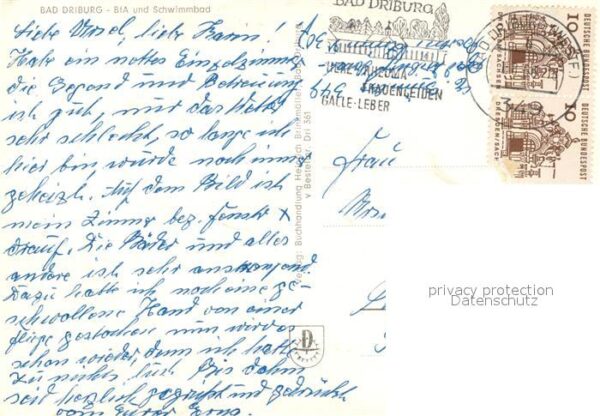 BAD DRIBURG - BfA und Schwimmbad
Liebe Ursel, liebe Karin!
Habe ein nettes Einzelzimmer
die Gegend und Betreuung
ist gut, nur das Wetter
sehr schlecht, so lange ich
hier bin, wurde noch immer
geheizt. Auf dem Bild ist
mein Zimmer bez. Fenster x
drauf. Die Bäder und alles
andere ist sehr anstrengend.
Dazu hatte ich noch eine ge-
schwollene Hand von einer
Fliege gestochen nun wird es
schon wieder, denn ich hatte
zu nichts Lust. Bis dahin
seid herzlich gegrüßt und gedrückt
von Eurer
Verlag: Buchhandlung Heinrich
Bestell-Nr. Dri 361
BAD DRIBURG
HERZ
FRAUENLEIDEN
GALLE-LEBER
BAD DRIBURG (WESTF)
349
10
DEUTSCHE BUNDESPOST
10
DEUTSCHE BUNDESPOST
Frau
privacy protection
Datenschutz